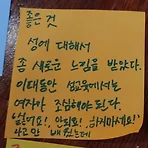 좋은 것
성에 대해서
좀 새로운 느낌을 받았다.
이때동안 성교육에서도
여자가 조심해야된다.
"싫어요!, 안돼요!, 하지마세요!"
라고만 배웠는데